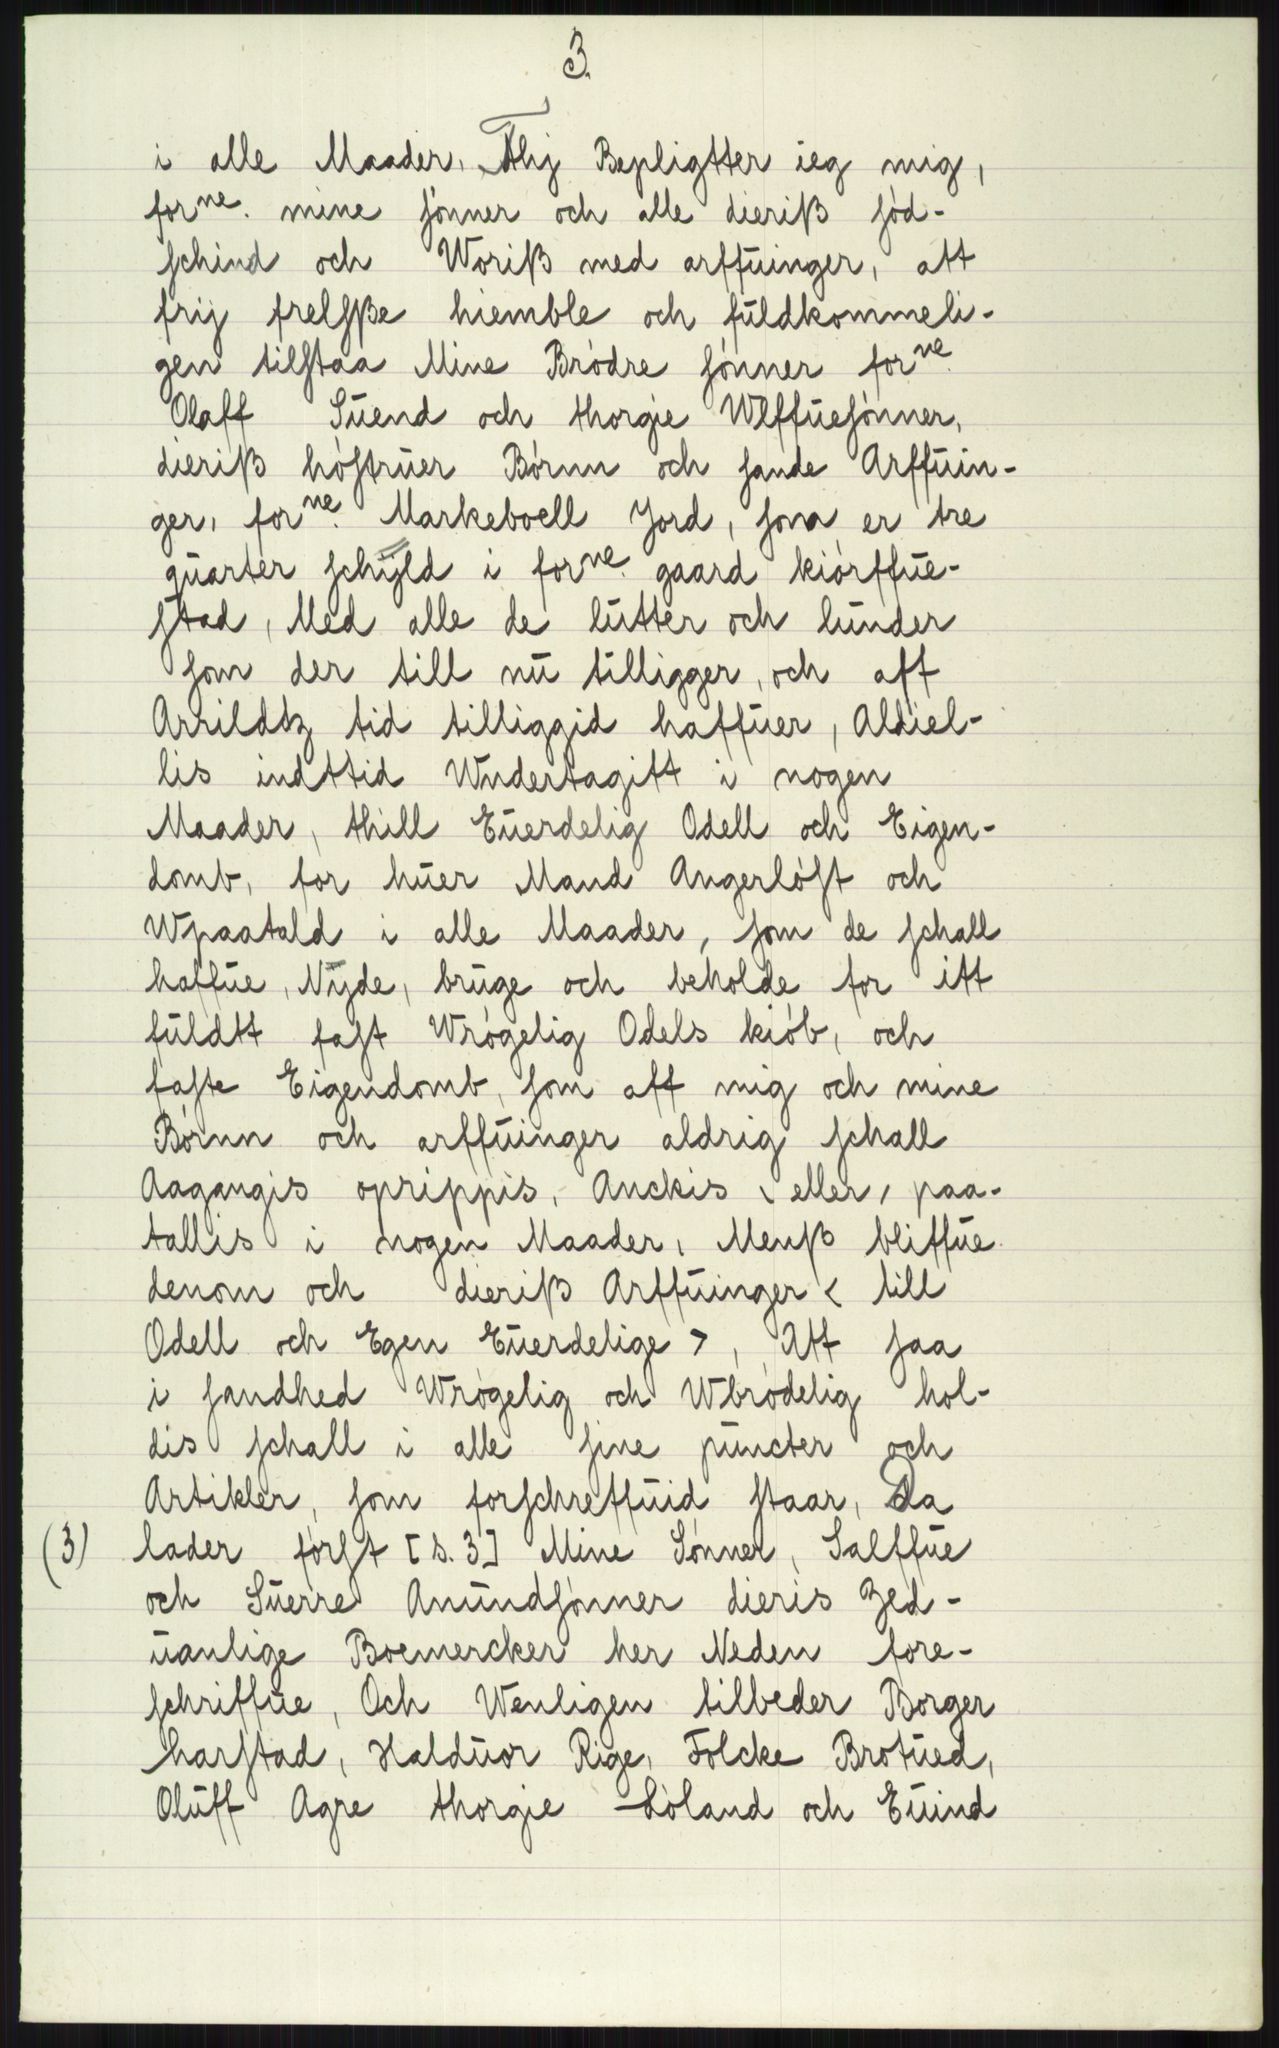 3.
i alle Maader, Thj Bepligtter ieg mig,
forne. mine sónner och alle dieriß sód-
schind och Woriß med arffūinger, att
frij frelsße hiemble och fūldkommeli-
gen tilstaa Mine Bródre sónner forne.
Olaff Sūend och thorgie Wlffūesónner,
dieriß hóstrūer Bórnn och sande Arffūin-
ger, forne. Markeboell Jord, som er tre
qūarter schÿld i forne. gaard kiórffūe-
stad, Med alle de lūtter och lūnder
som der till nū tilligger, och aff
Arrildtz tid tilliggid haffūer, Aldiel-
lis indttid Wndertagitt i nogen
Maader, thill Eūerdelig Odell och Eigen-
domb, for hūer Mand Angerlóst och
Wpaatald i alle Maader, som de schall
haffūe, Nÿde, brūge och beholde for itt
fūldtt fast Wrógelig Odels kiób, och
faste Eigendomb, som aff mig och mine
Bórnn och arffūinger aldrig schall
Aagangis oprippis, Anckis eller, paa-
tallis i nogen Maader, Menß bliffūe
denom och dieriß Arffūinger < till
Odell och Egen Eūerdelige >, Att saa
i sandhed Wrógelig och Wbródelig hol-
dis schall i alle sine pūncter och
Artikler, som forschreffūid staar, Da
(3) lader fórst [s. 3] Mine Sónner, Salffūe
och Sūerre Amūndsónner dieris Zed-
ūanlige Boemercker her Neden fore-
schriffūe, Och Wenligen tilbeder Borger
harstad, Haldūor Rige, Folcke Brotūed,
Olūff Agre thorgie Lóland och Eūind